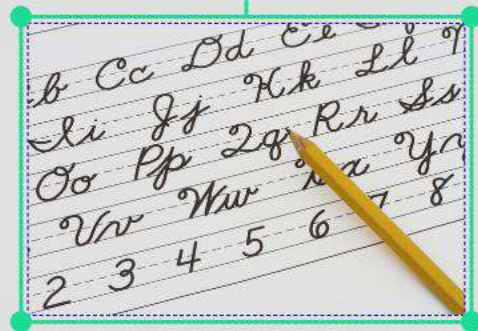 b Cc Dd Ee L
Ii Jj Kk Ll
Oo Pp Qq Rr Ss
Uu Ww x Yy
2 3 4 5 6 7 8